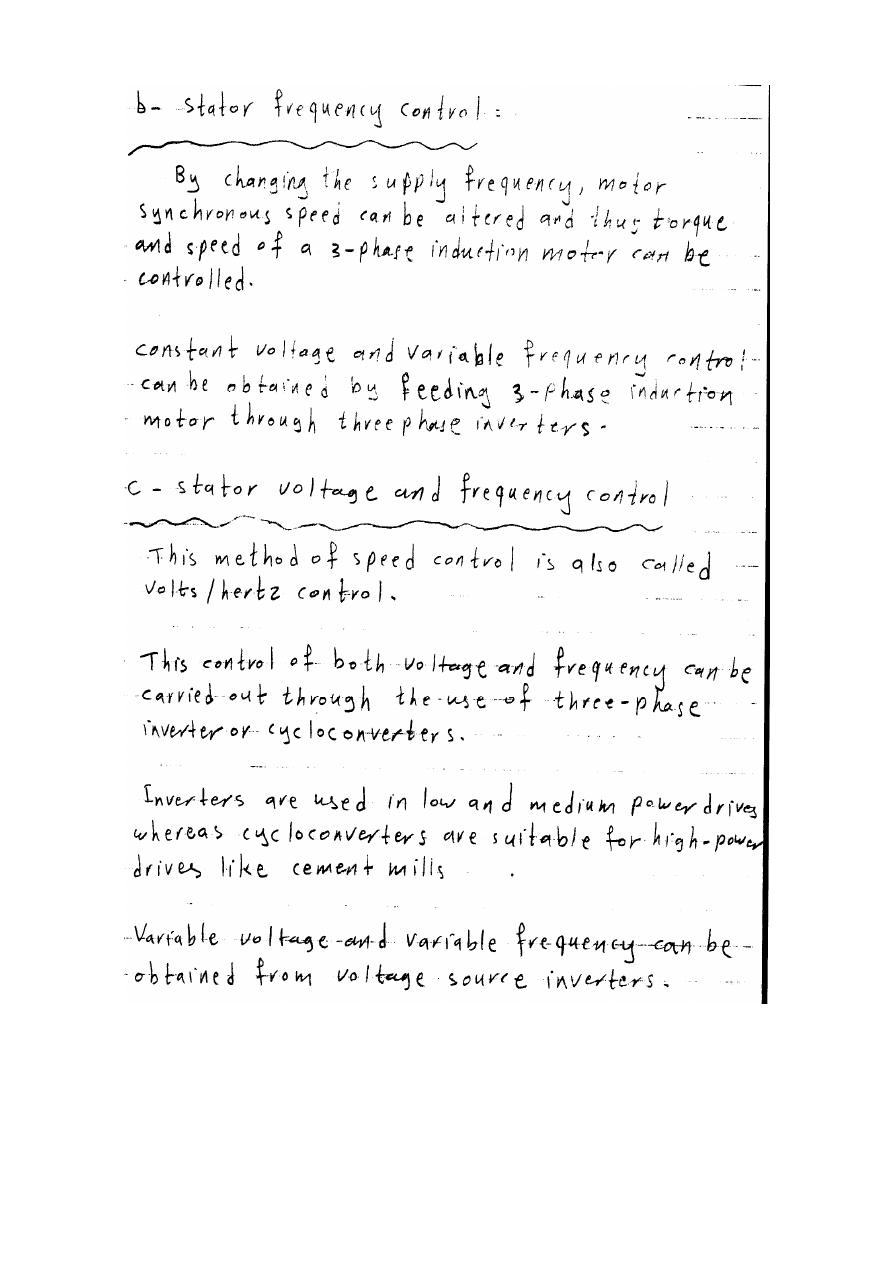 b- stator frequency control:
By changing the supply frequency, motor
synchronous speed can be altered and thus torque
and speed of a 3-phase induction motor can be
controlled.
constant voltage and variable frequency control
can be obtained by feeding 3-phase induction
motor through three phase inverters.
C - stator voltage and frequency control
This method of speed control is also called
Volts/hertz control.
This control of both voltage and frequency can be
carried out through the use of three-phase
inverter or cycloconverters.
Inverters are used in low and medium power drives
whereas cycloconverters are suitable for high-power
drives like cement mills .
Variable voltage and variable frequency can be
obtained from voltage source inverters.